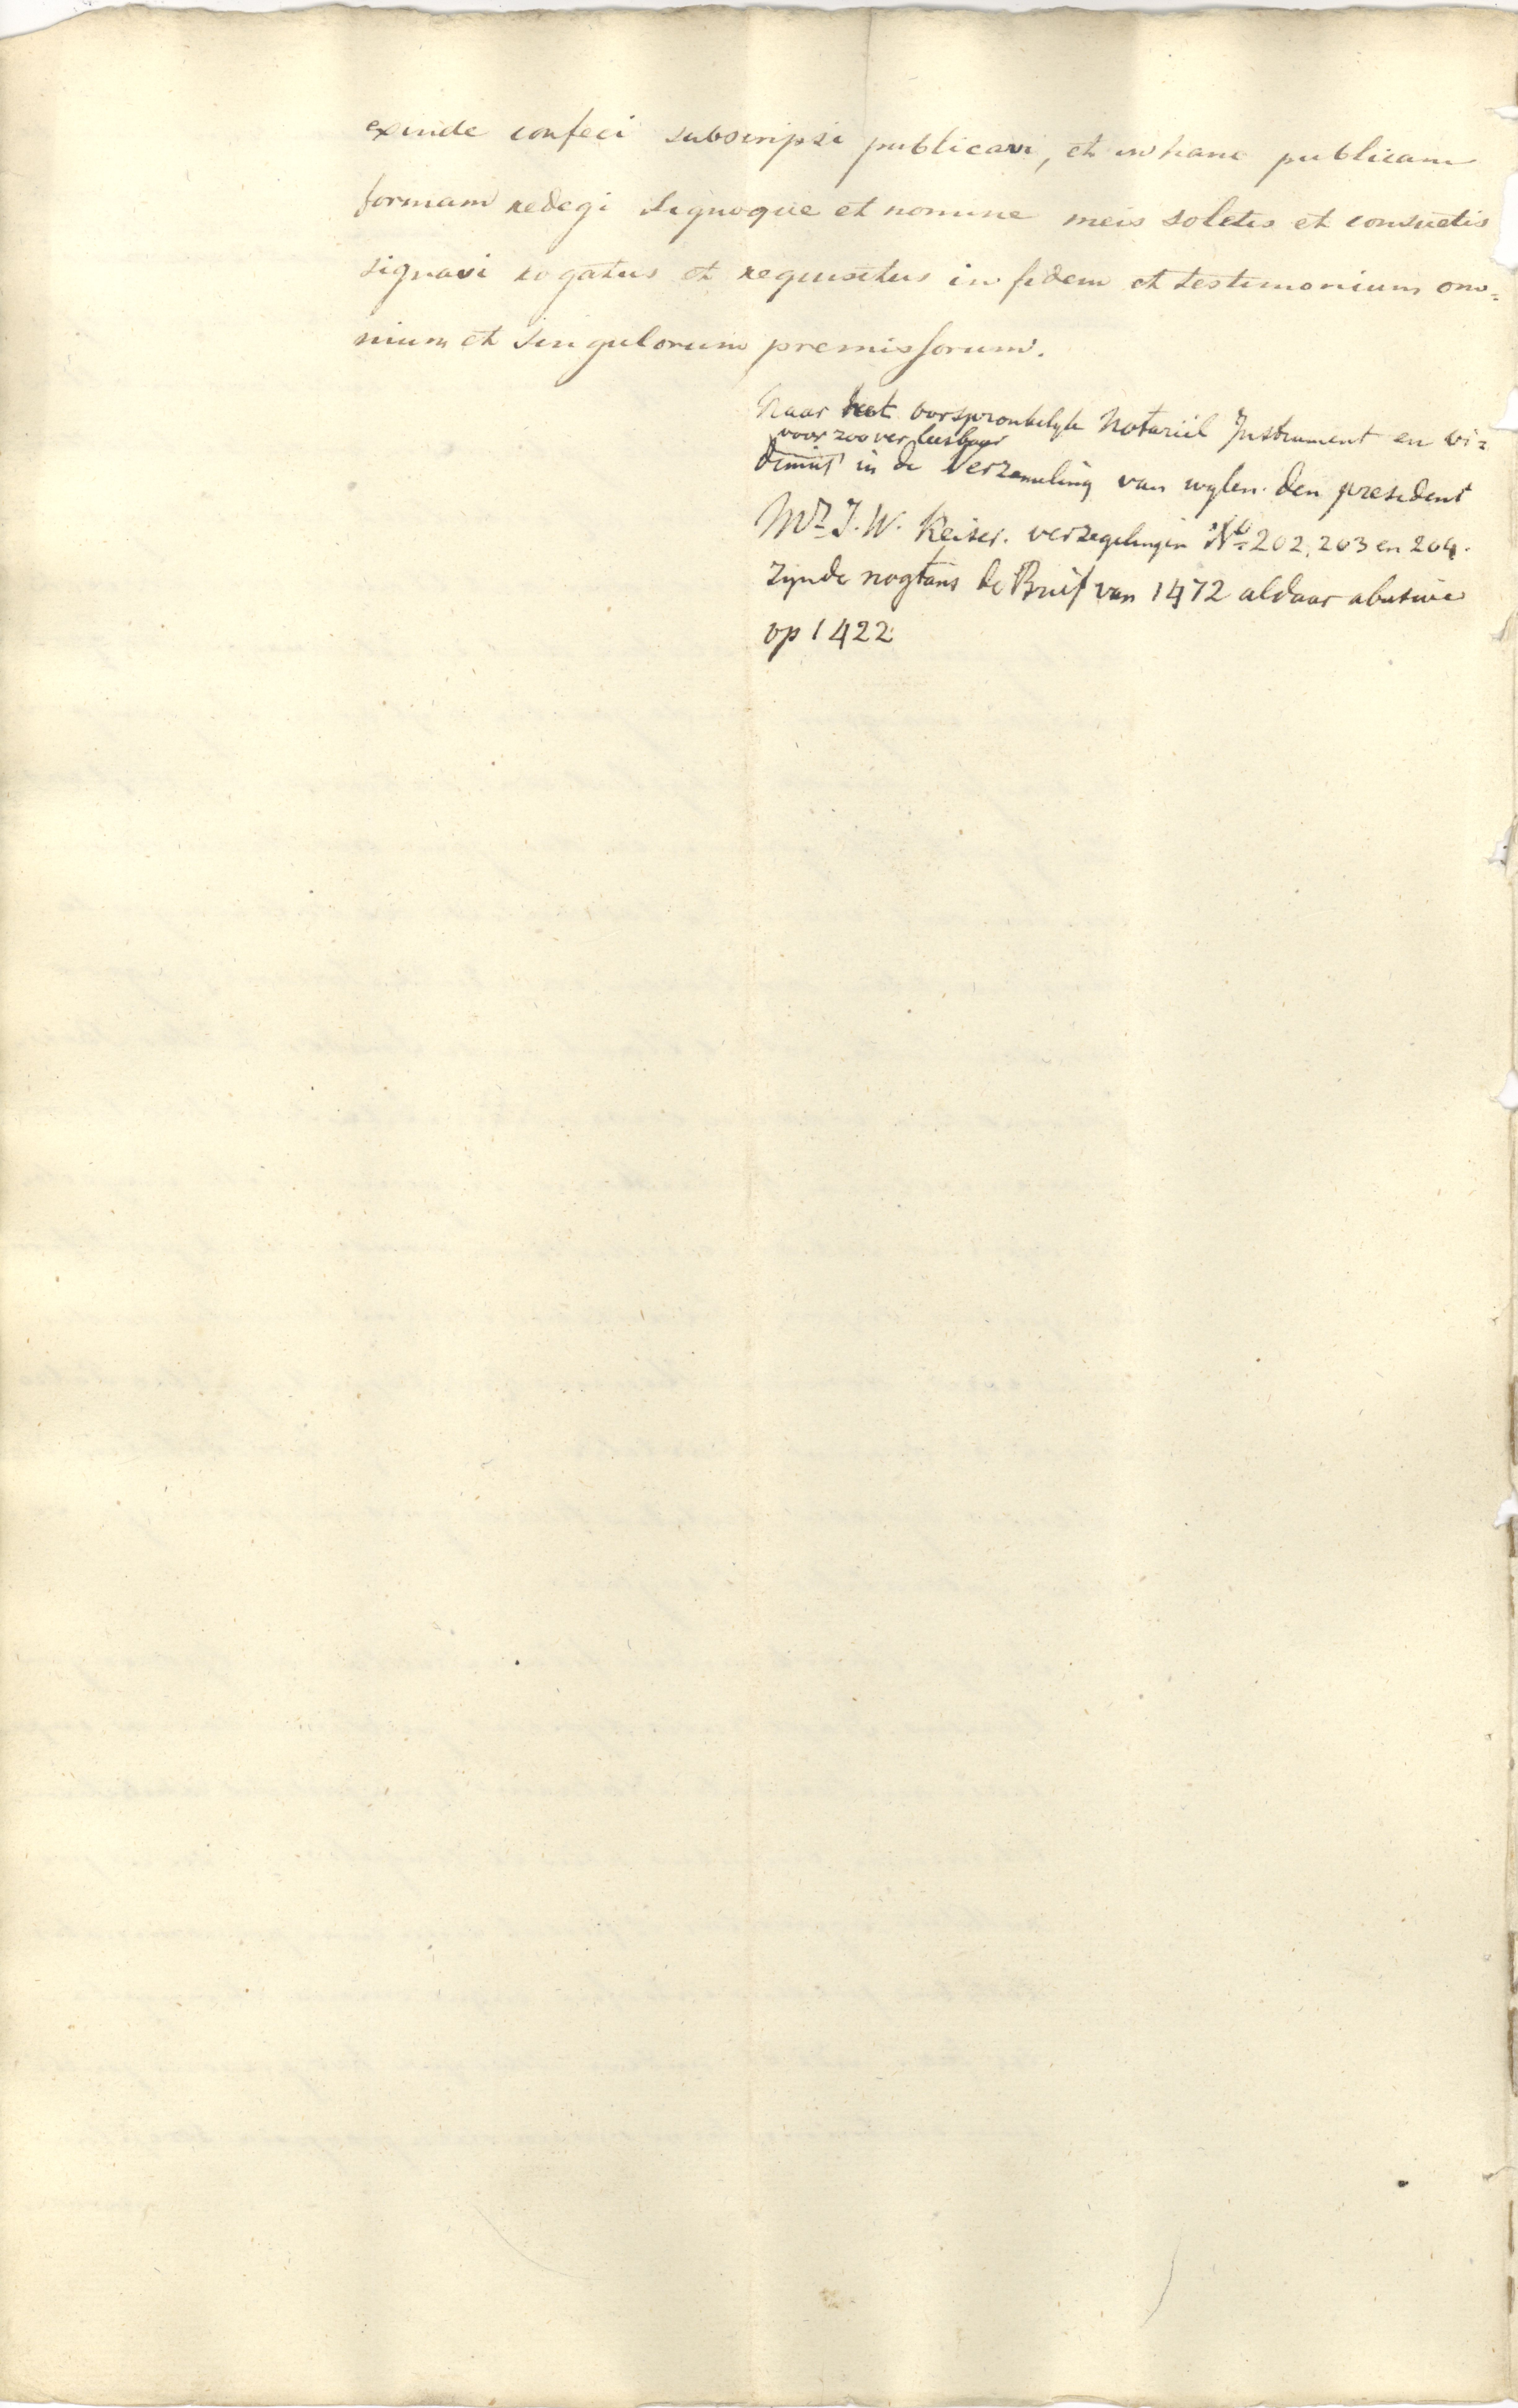 exinde confeci subscripsi publicavi, et in hanc publicam
formam redegi signoque et nomine meis solitis et consuetis
signavi rogatus et requisitus in fidem et testimonium om=
nium et singulorum premissorum.
Naar het oorspronkelyk Notariël Instrument en vi=
voor zoo ver leesbaar
dimus in de Verzameling van wylen den president
Mr J. W. Keiser. verzegelingen No 202, 203 en 204.
zynde nogtans de Brief van 1472 aldaar abusive
op 1422